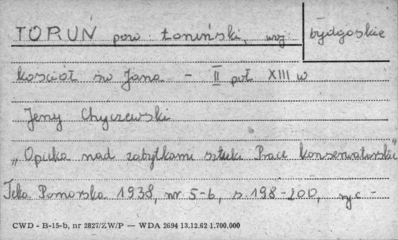 TORUŃ pow. toruński, woj. bydgoskie
kościół św Jana - II poł XIII w
Jerzy Chyczewski
„Opieka nad zabytkami sztuki Prace konserwatorskie"
Teka Pomorska 1938, nr 5-6, s 198-200, ryc -
CWD - B-15-b, nr 2827/ZW/P — WDA 2694 13.12.62 1.700.000